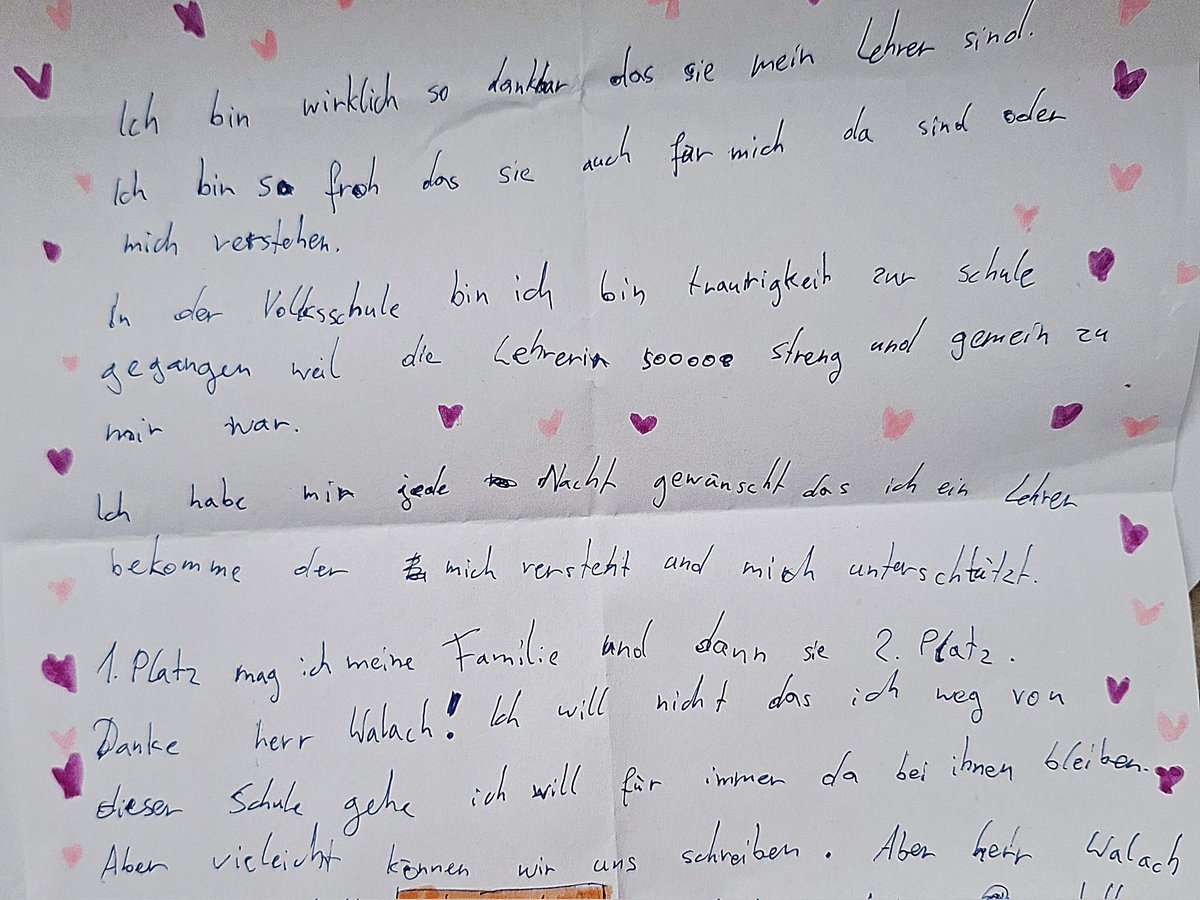 Ich bin wirklich so dankbar das sie mein Lehrer sind.
Ich bin so froh das sie auch für mich da sind oder
mich verstehen.
In der Volksschule bin ich bin traurigkeit zur schule
gegangen weil die Lehrerin sooooo streng und gemein zu
mir war.
Ich habe mir jede Nacht gewünscht das ich ein Lehrer
bekomme der mich versteht und mich unterschtützt.
1. Platz mag ich meine Familie und dann sie 2. Platz.
Danke herr Walach! Ich will nicht das ich weg von
dieser Schule gehe ich will für immer da bei ihnen bleiben.
Aber vieleicht können wir uns schreiben. Aber herr Walach